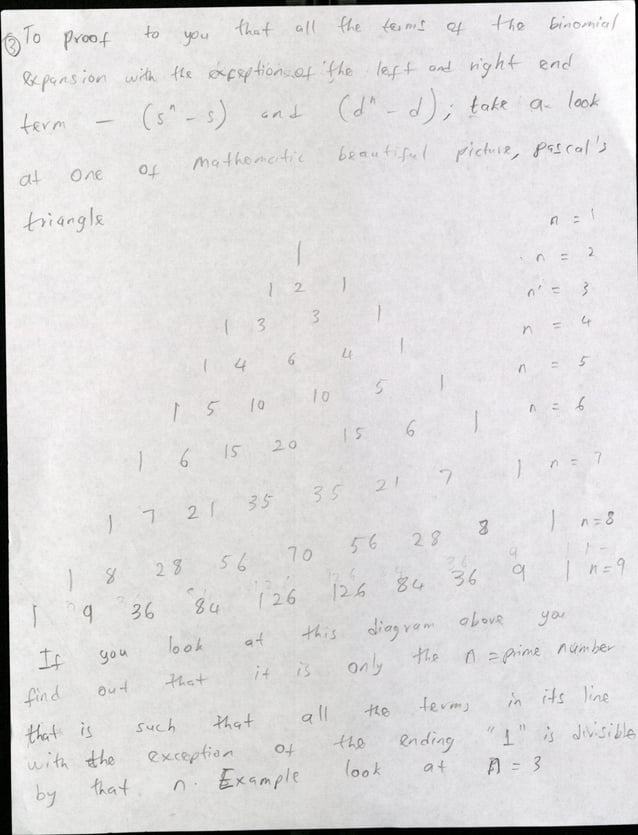 ③ To proof to you that all the terms of the binomial
expansion with the exception of the left and right end
term – (sⁿ - s) and (dⁿ - d); take a look
at one of mathematic beautiful picture, pascal's
triangle
n = 1
1 n = 2
1 2 1 n = 3
1 3 3 1 n = 4
1 4 6 4 1 n = 5
1 5 10 10 5 1 n = 6
1 6 15 20 15 6 1
1 7 21 35 35 21 7 1 n = 7
1 8 28 56 70 56 28 8 1 n = 8
1 9 36 84 126 126 84 36 9 1 n = 9
If you look at this diagram above you
find out that it is only the n = prime number
that is such that all the terms in its line
with the exception of the ending "1" is divisible
by that n. Example look at n = 3